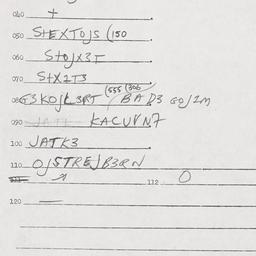 040 +
050 StEXTOjS (150
060 StOjX3T
070 StX1T3
(555 (306
08 G3KOjL3RT BAD3 GOJ2M
090 JATK KACUVN7
100 JATK3
110 OJSTREJB3QN
111 112 O
120 —